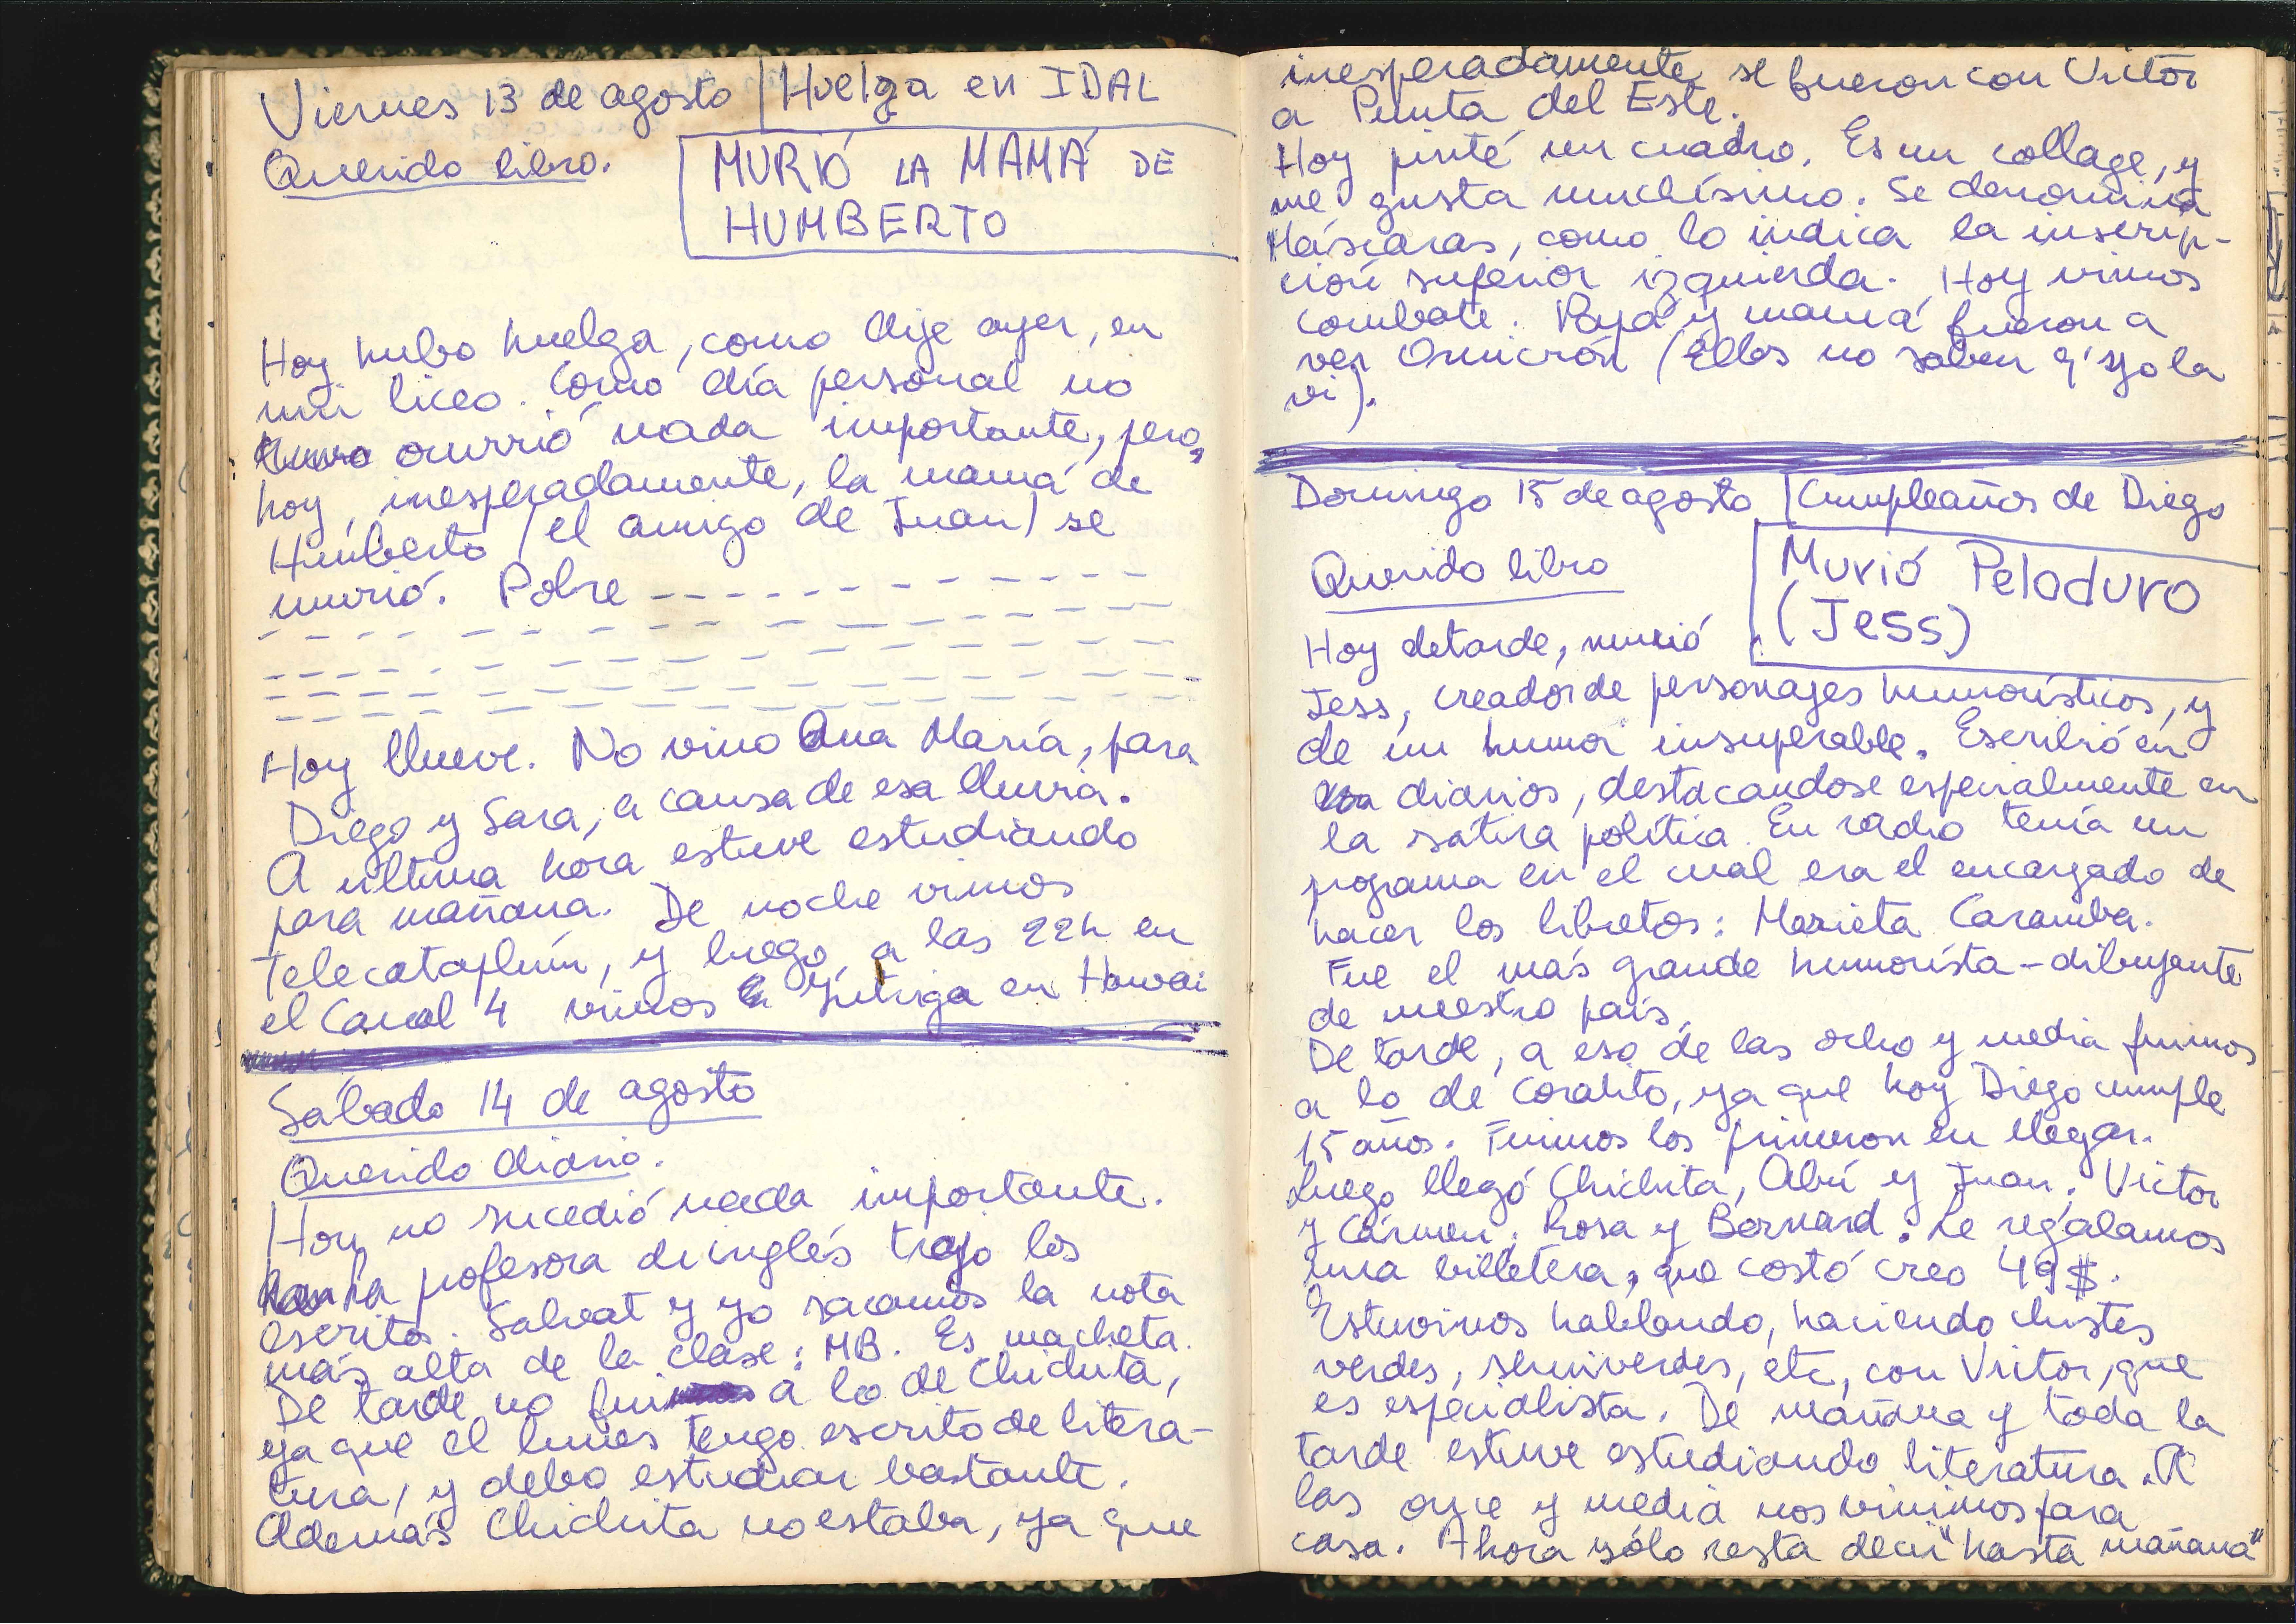 Viernes 13 de agosto | Huelga en IDAL
Querido libro.
MURIÓ LA MAMÁ DE
HUMBERTO
Hoy hubo huelga, como dije ayer, en
mi liceo. Como día personal no
ocurrió nada importante, pero,
hoy, inesperadamente, la mamá de
Humberto (el amigo de Juan) se
murió. Pobre - - - - - - - - -
Hoy llueve. No vino Ana María, para
Diego y Sara, a causa de esa lluvia.
A última hora estuve estudiando
para mañana. De noche vimos
Telecataplúm, y luego a las 22h en
el Canal 4 vimos Intriga en Hawai
Sábado 14 de agosto
Querido diario.
Hoy no sucedió nada importante.
La profesora de inglés trajo los
escritos. Salvat y yo sacamos la nota
más alta de la clase: MB. Es macheta.
De tarde no fui a lo de Chichita,
ya que el lunes tengo escrito de litera-
tura, y debo estudiar bastante.
Además Chichita no estaba, ya que
inesperadamente se fueron con Victor
a Punta del Este.
Hoy pinté un cuadro. Es un collage, y
me gusta muchísimo. Se denomina
Máscaras, como lo indica la inscrip-
ción superior izquierda. Hoy vimos
Combate. Papá y mamá fueron a
ver Omicrón (Ellos no saben q' yo la
vi).
Domingo 15 de agosto | Cumpleaños de Diego
Querido libro
Murió Peloduro
(Jess)
Hoy de tarde, murió
Jess, creador de personajes humorísticos, y
de un humor insuperable. Escribió en
diarios, destacandose especialmente en
la sátira política. En radio tenía un
programa en el cual era el encargado de
hacer los libretos: Marieta Caramba.
Fue el más grande humorista-dibujante
de nuestro país.
De tarde, a eso de las ocho y media fuimos
a lo de Coralito, ya que hoy Diego cumple
15 años. Fuimos los primeron en llegar.
Luego llegó Chichita, Abú y Juan. Victor
y Cármen; Rosa y Bernard. Le regalamos
una billetera, que costó creo 49$.
Estuvimos hablando, haciendo chistes
verdes, semiverdes, etc, con Victor, que
es especialista. De mañana y toda la
tarde estuve estudiando literatura. A
las once y media nos vinimos para
casa. Ahora sólo resta decir "hasta mañana"